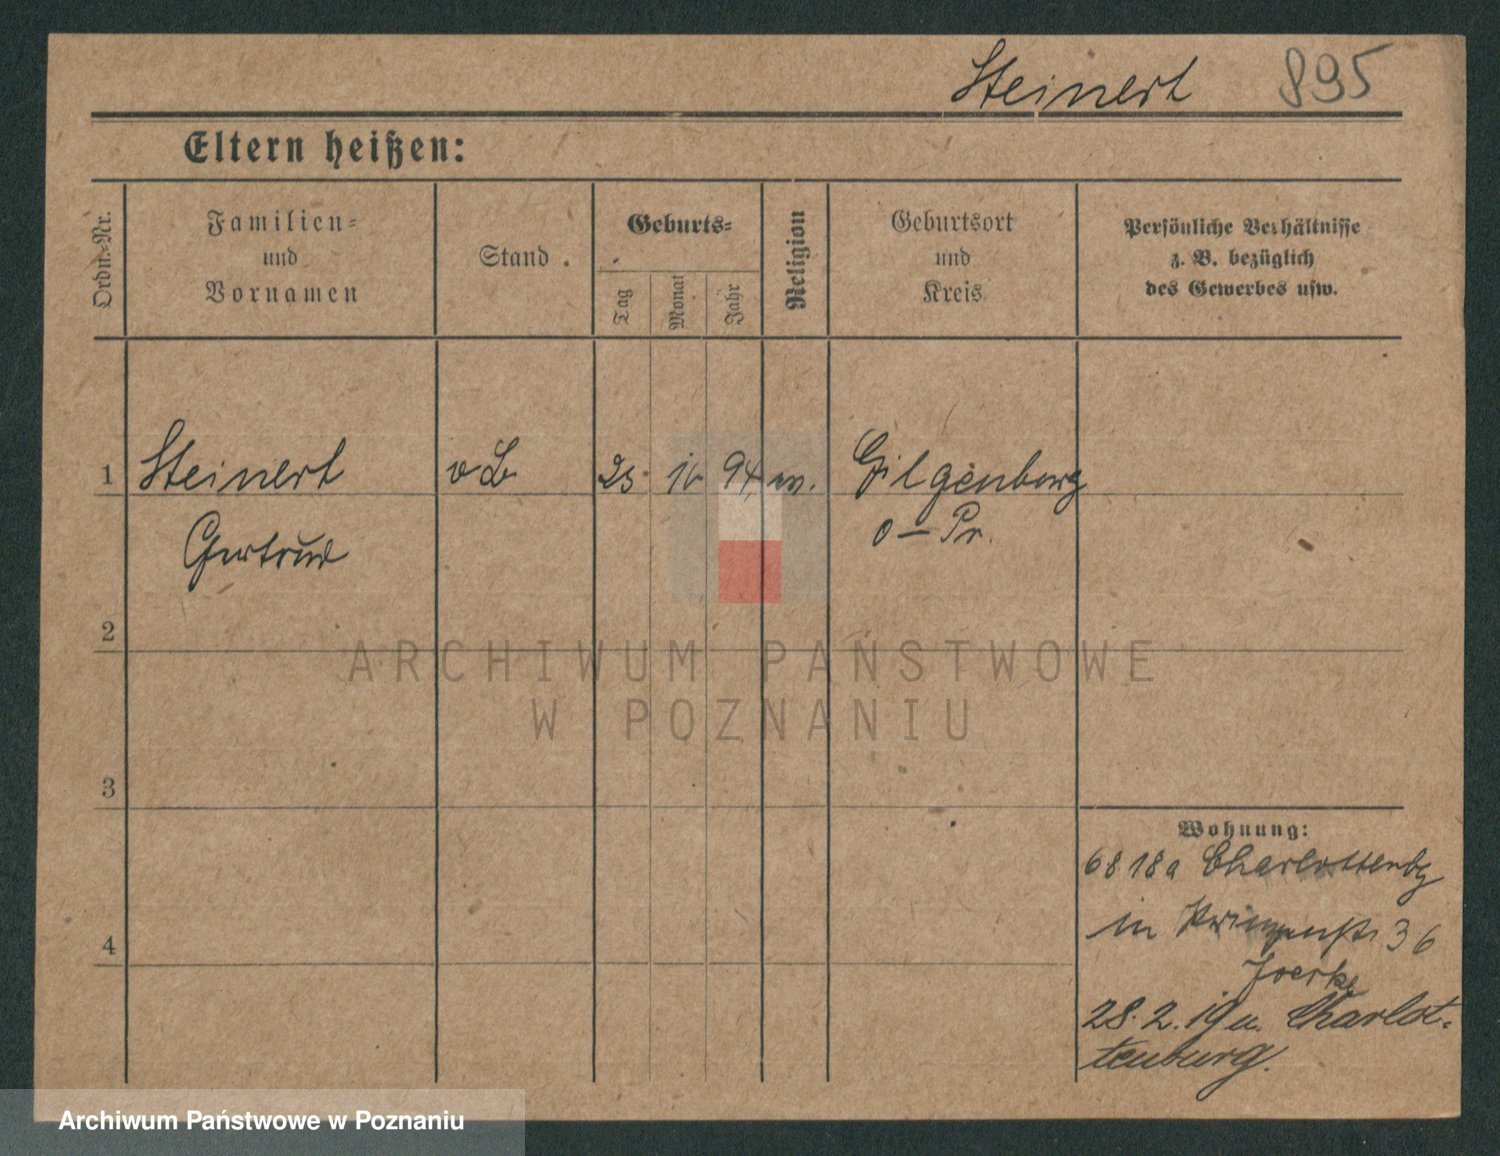 Steinert 895
Eltern heißen:
Ordn.-Nr.
Familien-
und
Vornamen
Stand
Geburts-
Tag
Monat
Jahr
Religion
Geburtsort
und
Kreis
Persönliche Verhältnisse
z. B. bezüglich
des Gewerbes usw.
1 Steinert 94 Gilgenburg
Gertrud O-Pr.
2
3
4
Wohnung:
6 8 18 a Charlottenbg
in 36
28. 2. 19 a. Charlot-
tenburg.
ARCHIWUM PAŃSTWOWE
W POZNANIU
Archiwum Państwowe w Poznaniu